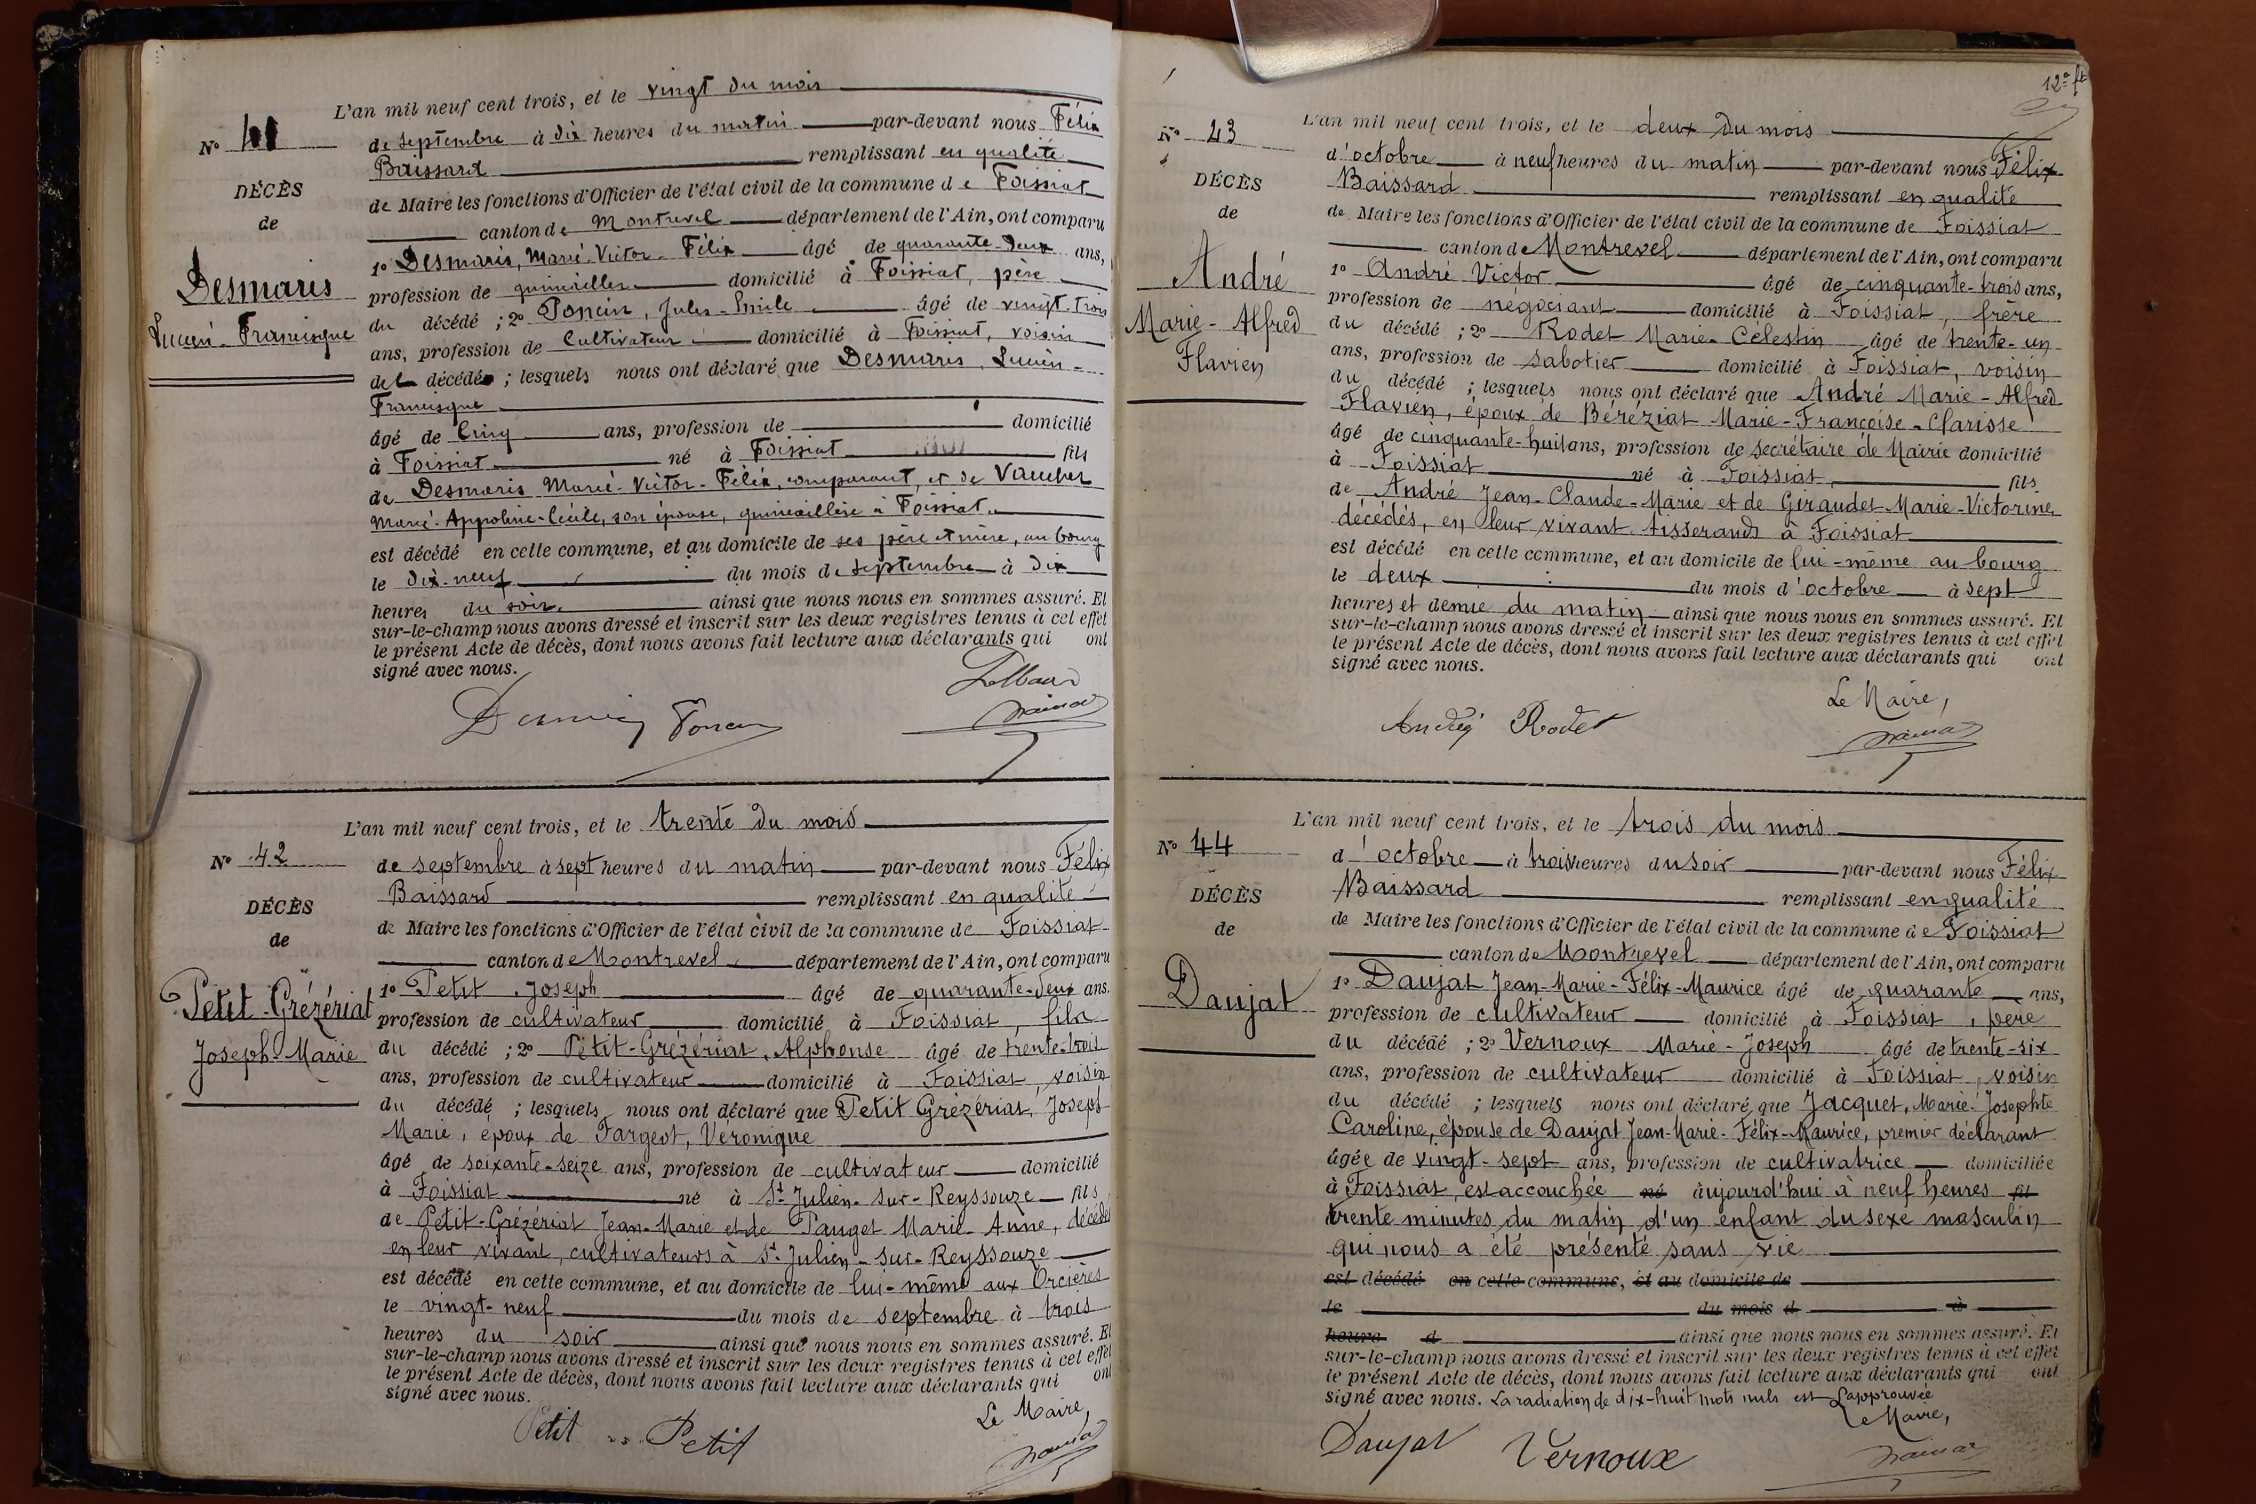 L'an mil neuf cent trois, et le vingt du mois
N° 41
de septembre à dix heures du matin par-devant nous Félix
Baissard remplissant en qualité
DÉCÈS
de Maire les fonctions d'Officier de l'état civil de la commune de Foissiat
de
canton de Montrevel département de l'Ain, ont comparu
1° Desmaris, Marie-Victor-Félix âgé de quarante-deux ans,
Desmaris
profession de quincailler domicilié à Foissiat, père
du décédé ; 2° Poncin, Jules-Emile âgé de vingt-trois
Lucien-Francisque
ans, profession de Cultivateur domicilié à Foissiat, voisin
del décédé ; lesquels nous ont déclaré que Desmaris, Lucien-
Francisque
âgé de Cinq ans, profession de domicilié
à Foissiat né à Foissiat fils
de Desmaris Marie-Victor-Félix, comparant, et de Vaucher
Marie-Appoline-Cécile, son épouse, quincaillère à Foissiat.
est décédé en cette commune, et au domicile de ses père et mère, au bourg
le dix-neuf du mois de septembre à dix
heures du soir ainsi que nous nous en sommes assuré. Et
sur-le-champ nous avons dressé et inscrit sur les deux registres tenus à cet effet
le présent Acte de décès, dont nous avons fait lecture aux déclarants qui ont
signé avec nous.
Poncin
L'an mil neuf cent trois, et le trente du mois
N° 42
de septembre à sept heures du matin par-devant nous Félix
Baissard remplissant en qualité
DÉCÈS
de Maire les fonctions d'Officier de l'état civil de la commune de Foissiat
de
canton de Montrevel département de l'Ain, ont comparu
1° Petit Joseph âgé de quarante-deux ans.
Petit-Grézériat
profession de cultivateur domicilié à Foissiat, fils
Joseph-Marie
du décédé ; 2° Petit-Grézériat, Alphonse âgé de trente-trois
ans, profession de cultivateur domicilié à Foissiat, voisin
du décédé ; lesquels nous ont déclaré que Petit Grézériat, Joseph
Marie, époux de Fargeot, Véronique
âgé de soixante-seize ans, profession de cultivateur domicilié
à Foissiat né à St Julien-sur-Reyssouze fils
de Petit-Grézériat Jean-Marie et de Pauget Marie-Anne, décédés
en leur vivant, cultivateurs à St Julien-sur-Reyssouze
est décédé en cette commune, et au domicile de lui-même aux Orcières
le vingt-neuf du mois de septembre à trois
heures du soir ainsi que nous nous en sommes assuré. Et
sur-le-champ nous avons dressé et inscrit sur les deux registres tenus à cet effet
le présent Acte de décès, dont nous avons fait lecture aux déclarants qui ont
signé avec nous.
Le Maire,
Petit Petit
12e ft
L'an mil neuf cent trois, et le deux du mois
N° 43
d'octobre à neuf heures du matin par-devant nous Félix
DÉCÈS
Baissard remplissant en qualité
de
de Maire les fonctions d'Officier de l'état civil de la commune de Foissiat
canton de Montrevel département de l'Ain, ont comparu
André
1° André Victor âgé de cinquante-trois ans,
profession de négociant domicilié à Foissiat, frère
Marie-Alfred
du décédé ; 2° Rodet Marie-Célestin âgé de trente-un
Flavien
ans, profession de sabotier domicilié à Foissiat, voisin
du décédé ; lesquels nous ont déclaré que André Marie-Alfred
Flavien, époux de Béréziat Marie-Françoise-Clarisse
âgé de cinquante-huit ans, profession de secrétaire de Mairie domicilié
à Foissiat né à Foissiat, fils
de André Jean-Claude-Marie et de Giraudet Marie-Victorine
décédés, en leur vivant tisserands à Foissiat
est décédé en cette commune, et au domicile de lui-même au bourg
le deux du mois d'octobre à sept
heures et demie du matin ainsi que nous nous en sommes assuré. Et
sur-le-champ nous avons dressé et inscrit sur les deux registres tenus à cet effet
le présent Acte de décès, dont nous avons fait lecture aux déclarants qui ont
signé avec nous.
Le Maire,
André Rodet
L'an mil neuf cent trois, et le trois du mois
N° 44
d'octobre à trois heures du soir par-devant nous Félix
DÉCÈS
Baissard remplissant en qualité
de
de Maire les fonctions d'Officier de l'état civil de la commune de Foissiat
canton de Montrevel département de l'Ain, ont comparu
Daujat
1° Daujat Jean-Marie-Félix-Maurice âgé de quarante ans,
profession de cultivateur domicilié à Foissiat, père
du décédé ; 2° Vernoux Marie-Joseph âgé de trente-six
ans, profession de cultivateur domicilié à Foissiat, voisin
du décédé ; lesquels nous ont déclaré que Jacquet, Marie-Josephte
Caroline, épouse de Daujat Jean-Marie-Félix-Maurice, premier déclarant
âgée de vingt-sept ans, profession de cultivatrice domiciliée
à Foissiat, est accouchée né aujourd'hui à neuf heures fil
trente minutes du matin d'un enfant du sexe masculin
qui nous a été présenté sans vie
est décédé en cette commune, et au domicile de
le du mois d à
heure d ainsi que nous nous en sommes assuré. Et
sur-le-champ nous avons dressé et inscrit sur les deux registres tenus à cet effet
le présent Acte de décès, dont nous avons fait lecture aux déclarants qui ont
signé avec nous. La radiation de dix-huit mots nuls est approuvée
Le Maire,
Daujat Vernoux